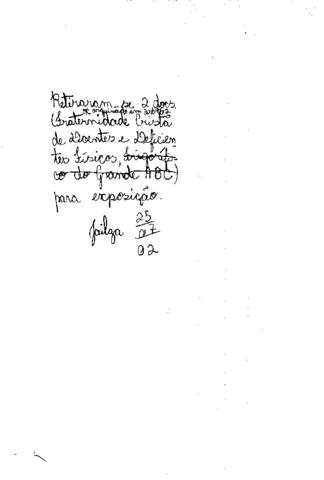 Retiraram-se 2 docs,
(Fraternidade Cristã
de Doentes e Deficien-
tes Físicos,
co do Grande ABC)
para exposição.
Jailza 25
07
02